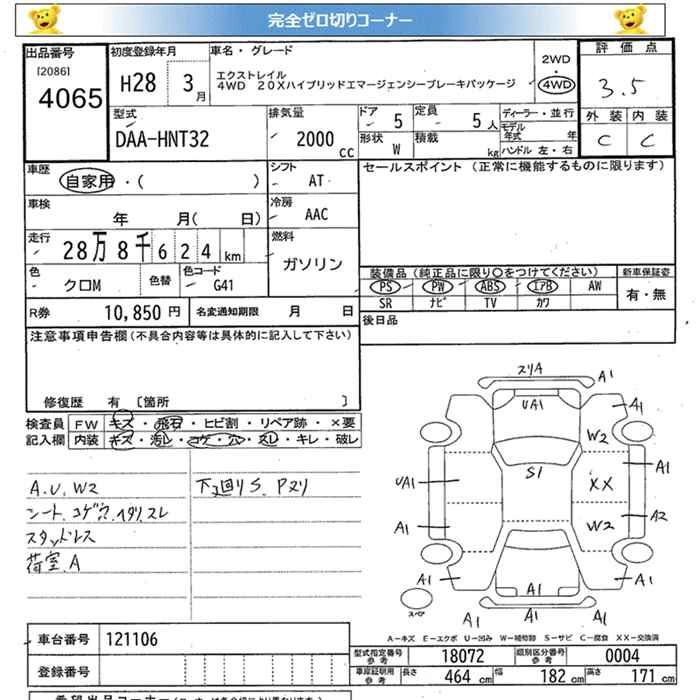 完全ゼロ切りコーナー
出品番号
[2086]
4065
初度登録年月
H28 3月
車名・グレード
エクストレイル
4WD 20Xハイブリッドエマージェンシーブレーキパッケージ
2WD
4WD
評価点
3.5
外装 内装
C C
型式
DAA-HNT32
排気量
2000 cc
ドア 5
形状 W
定員 5人
積載 kg
ディーラー・並行
モデル年式 年
ハンドル 左・右
車歴
自家用・( )
シフト
AT
車検
年 月( 日)
冷房
AAC
走行
28万8千624km
燃料
ガソリン
色
クロM
色替
色コード
G41
R券 10,850円
名変通知期限 月 日
セールスポイント (正常に機能するものに限ります)
装備品(純正品に限り○をつけてください)
PS PW ABS エアB AW
SR ナビ TV カワ
新車保証書
有・無
後日品
注意事項申告欄(不具合内容等は具体的に記入して下さい)
修復歴 有 [箇所 ]
検査員記入欄
FW キズ・飛石・ヒビ割・リペア跡・×要
内装 キズ・汚レ・コゲ・穴・スレ・キレ・破レ
A.U.W2
シート.コゲ穴.ヘタリ.スレ
スタッドレス
荷室.A
下廻りS.Pヌリ
スリA
A1
UA1
A1
W2
S1
A1
UA1
XX
A1
W2
A2
A1
A1
A1
スペア
A1
A1
A1
A-キズ E-エクボ U-凹み W-補修跡 S-サビ C-腐食 XX-交換済
車台番号 121106
登録番号
型式指定番号 参考 18072
類別区分番号 参考 0004
車庫証明用 参考 長さ 464 cm 幅 182 cm 高さ 171 cm